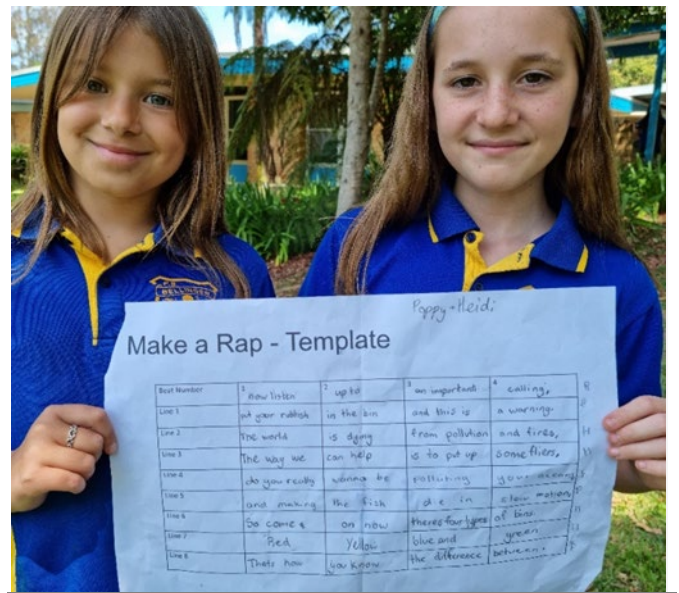 P.S.
BELLINGEN
Poppy + Heidi
Make a Rap - Template
Beat Number 1 2 3 4
now listen up to an important calling,
Line 1 put your rubbish in the bin and this is a warning.
Line 2 The world is dying from pollution and fires,
Line 3 The way we can help is to put up some fliers,
Line 4 do you really wanna be polluting your oceans
Line 5 and making the fish die in slow motion
Line 6 So come on now theres four types of bins.
Line 7 Red Yellow blue and green
Line 8 Thats how you know the difference between.